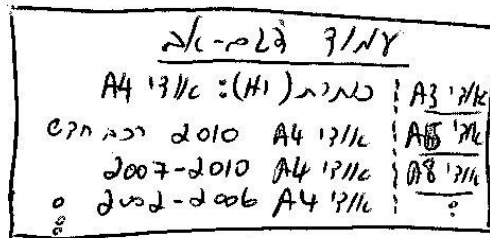 עמוד דגם-אב
כותרת (H1): אאודי A4
אאודי A4 2010 רכב חדש
אאודי A4 2007-2010
אאודי A4 2002-2006
אאודי A3
אאודי A8